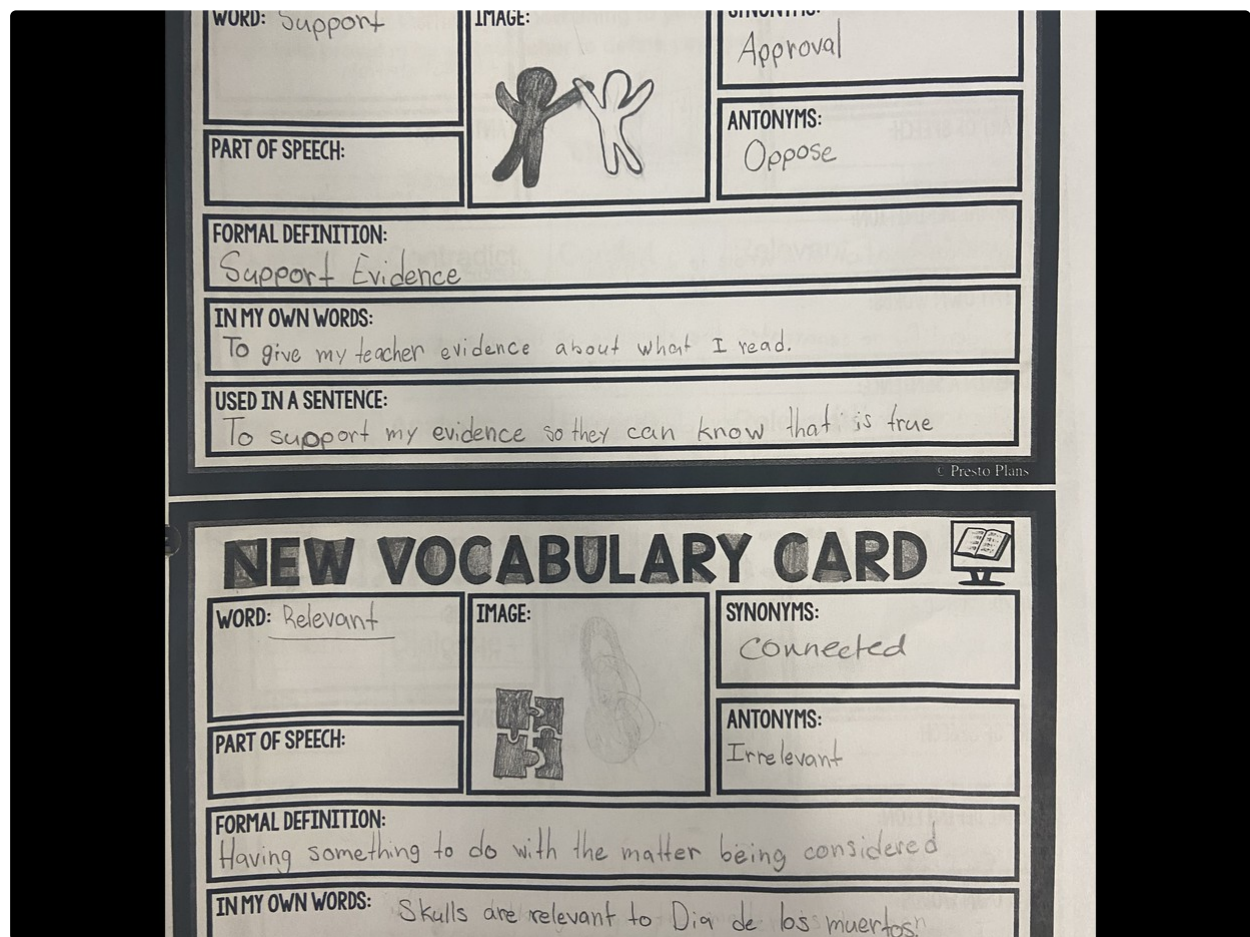 WORD: Support
IMAGE:
SYNONYMS:
Approval
ANTONYMS:
Oppose
PART OF SPEECH:
FORMAL DEFINITION:
Support Evidence
IN MY OWN WORDS:
To give my teacher evidence about what I read.
USED IN A SENTENCE:
To support my evidence so they can know that is true
© Presto Plans
NEW VOCABULARY CARD
WORD: Relevant
IMAGE:
SYNONYMS:
Connected
ANTONYMS:
Irrelevant
PART OF SPEECH:
FORMAL DEFINITION:
Having something to do with the matter being considered
IN MY OWN WORDS: Skulls are relevant to Dia de los muertos.